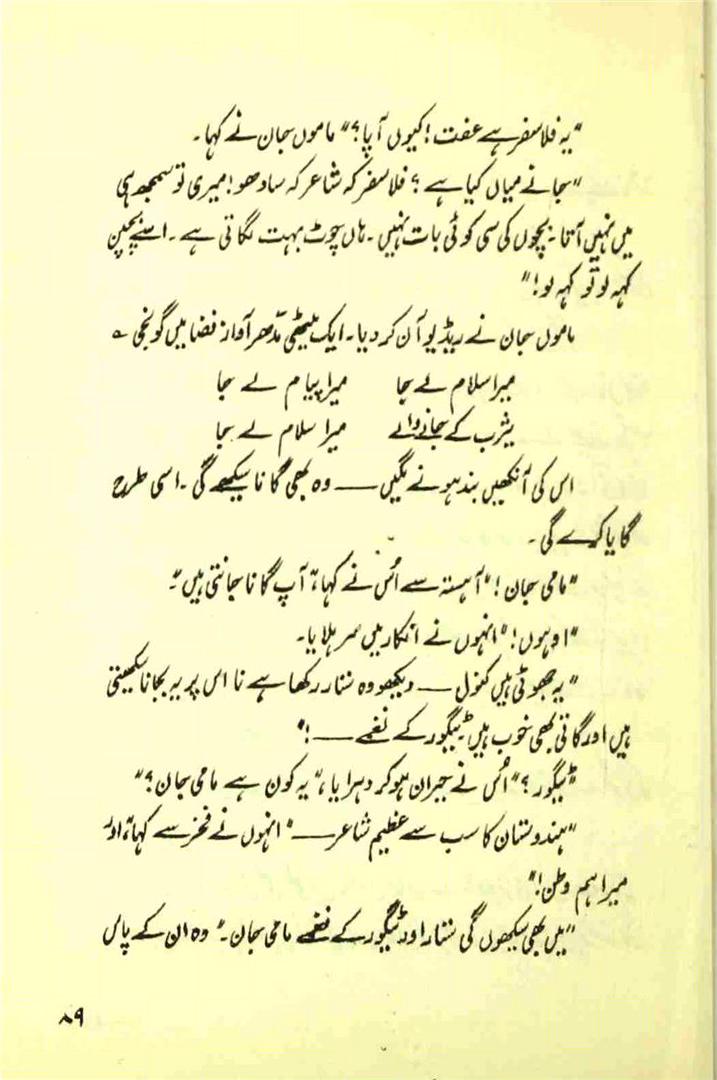 "یہ فلاسفر ہے عفت! کیوں آپا؟" ماموں جان نے کہا۔
"جانے میاں کیا ہے؟ فلاسفر کہ شاعر کہ سادھو! میری تو سمجھ ہی
میں نہیں آتا۔ بچوں کی سی کوئی بات نہیں۔ ہاں چوٹ بہت لگاتی ہے۔ اسے بچپن
کہہ لو تو کہہ لو!"
ماموں جان نے ریڈیو آن کر دیا۔ ایک میٹھی مدّھر آواز فضا میں گونجی ؎
میرا سلام لے جا میرا پیام لے جا
یثرب کے جانے والے میرا سلام لے جا
اس کی آنکھیں بند ہونے لگیں ــــ وہ بھی گانا سیکھے گی۔ اسی طرح
گایا کرے گی۔
"مامی جان!" آہستہ سے اُس نے کہا، "آپ گانا جانتی ہیں"۔
"اوہوں!" انہوں نے انکار میں سر ہلایا۔
"یہ جھوٹی ہیں کنول ــــ دیکھو وہ ستار رکھا ہے نا اس پر یہ بجانا سیکھتی
ہیں اور گاتی بھی خوب ہیں ٹیگور کے نغمے ــــ!"
"ٹیگور؟" اُس نے حیران ہو کر دہرایا، "یہ کون ہے مامی جان؟"
"ہندوستان کا سب سے عظیم شاعر ــــ" انہوں نے فخر سے کہا، "اور
میرا ہم وطن!"
"میں بھی سیکھوں گی ستار اور ٹیگور کے نغمے مامی جان۔" وہ ان کے پاس
۸۹